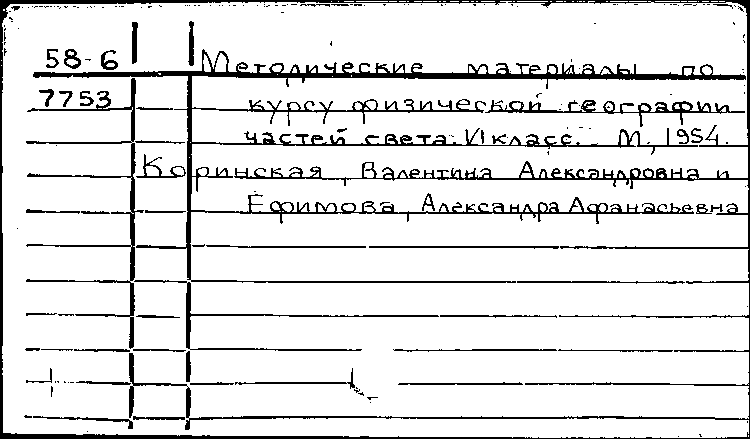 58-6 Методические материалы по
7753 курсу физической географии
частей света. VI класс. М., 1954.
Коринская, Валентина Александровна и
Ефимова, Александра Афанасьевна